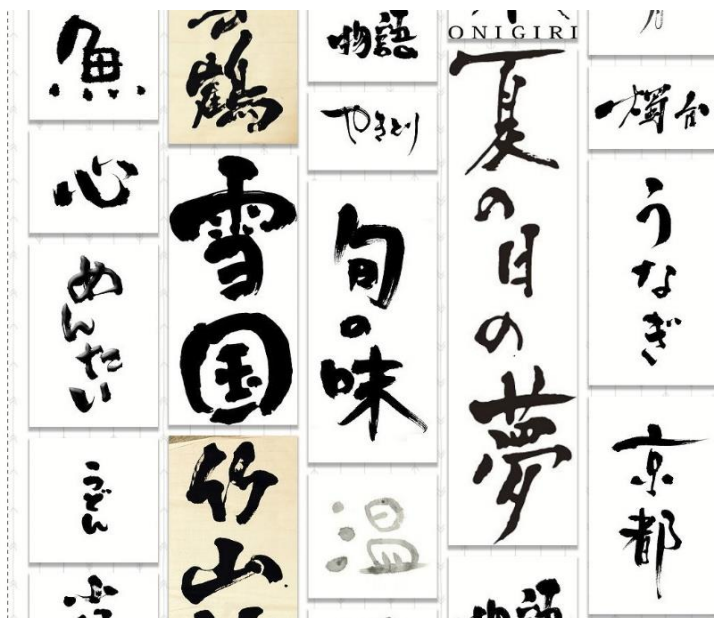 魚
心
めんたい
うどん
鶴
雪国
竹山
物語
やきとり
旬の味
温
ONIGIRI
夏の日の夢
物語
燭台
うなぎ
京都